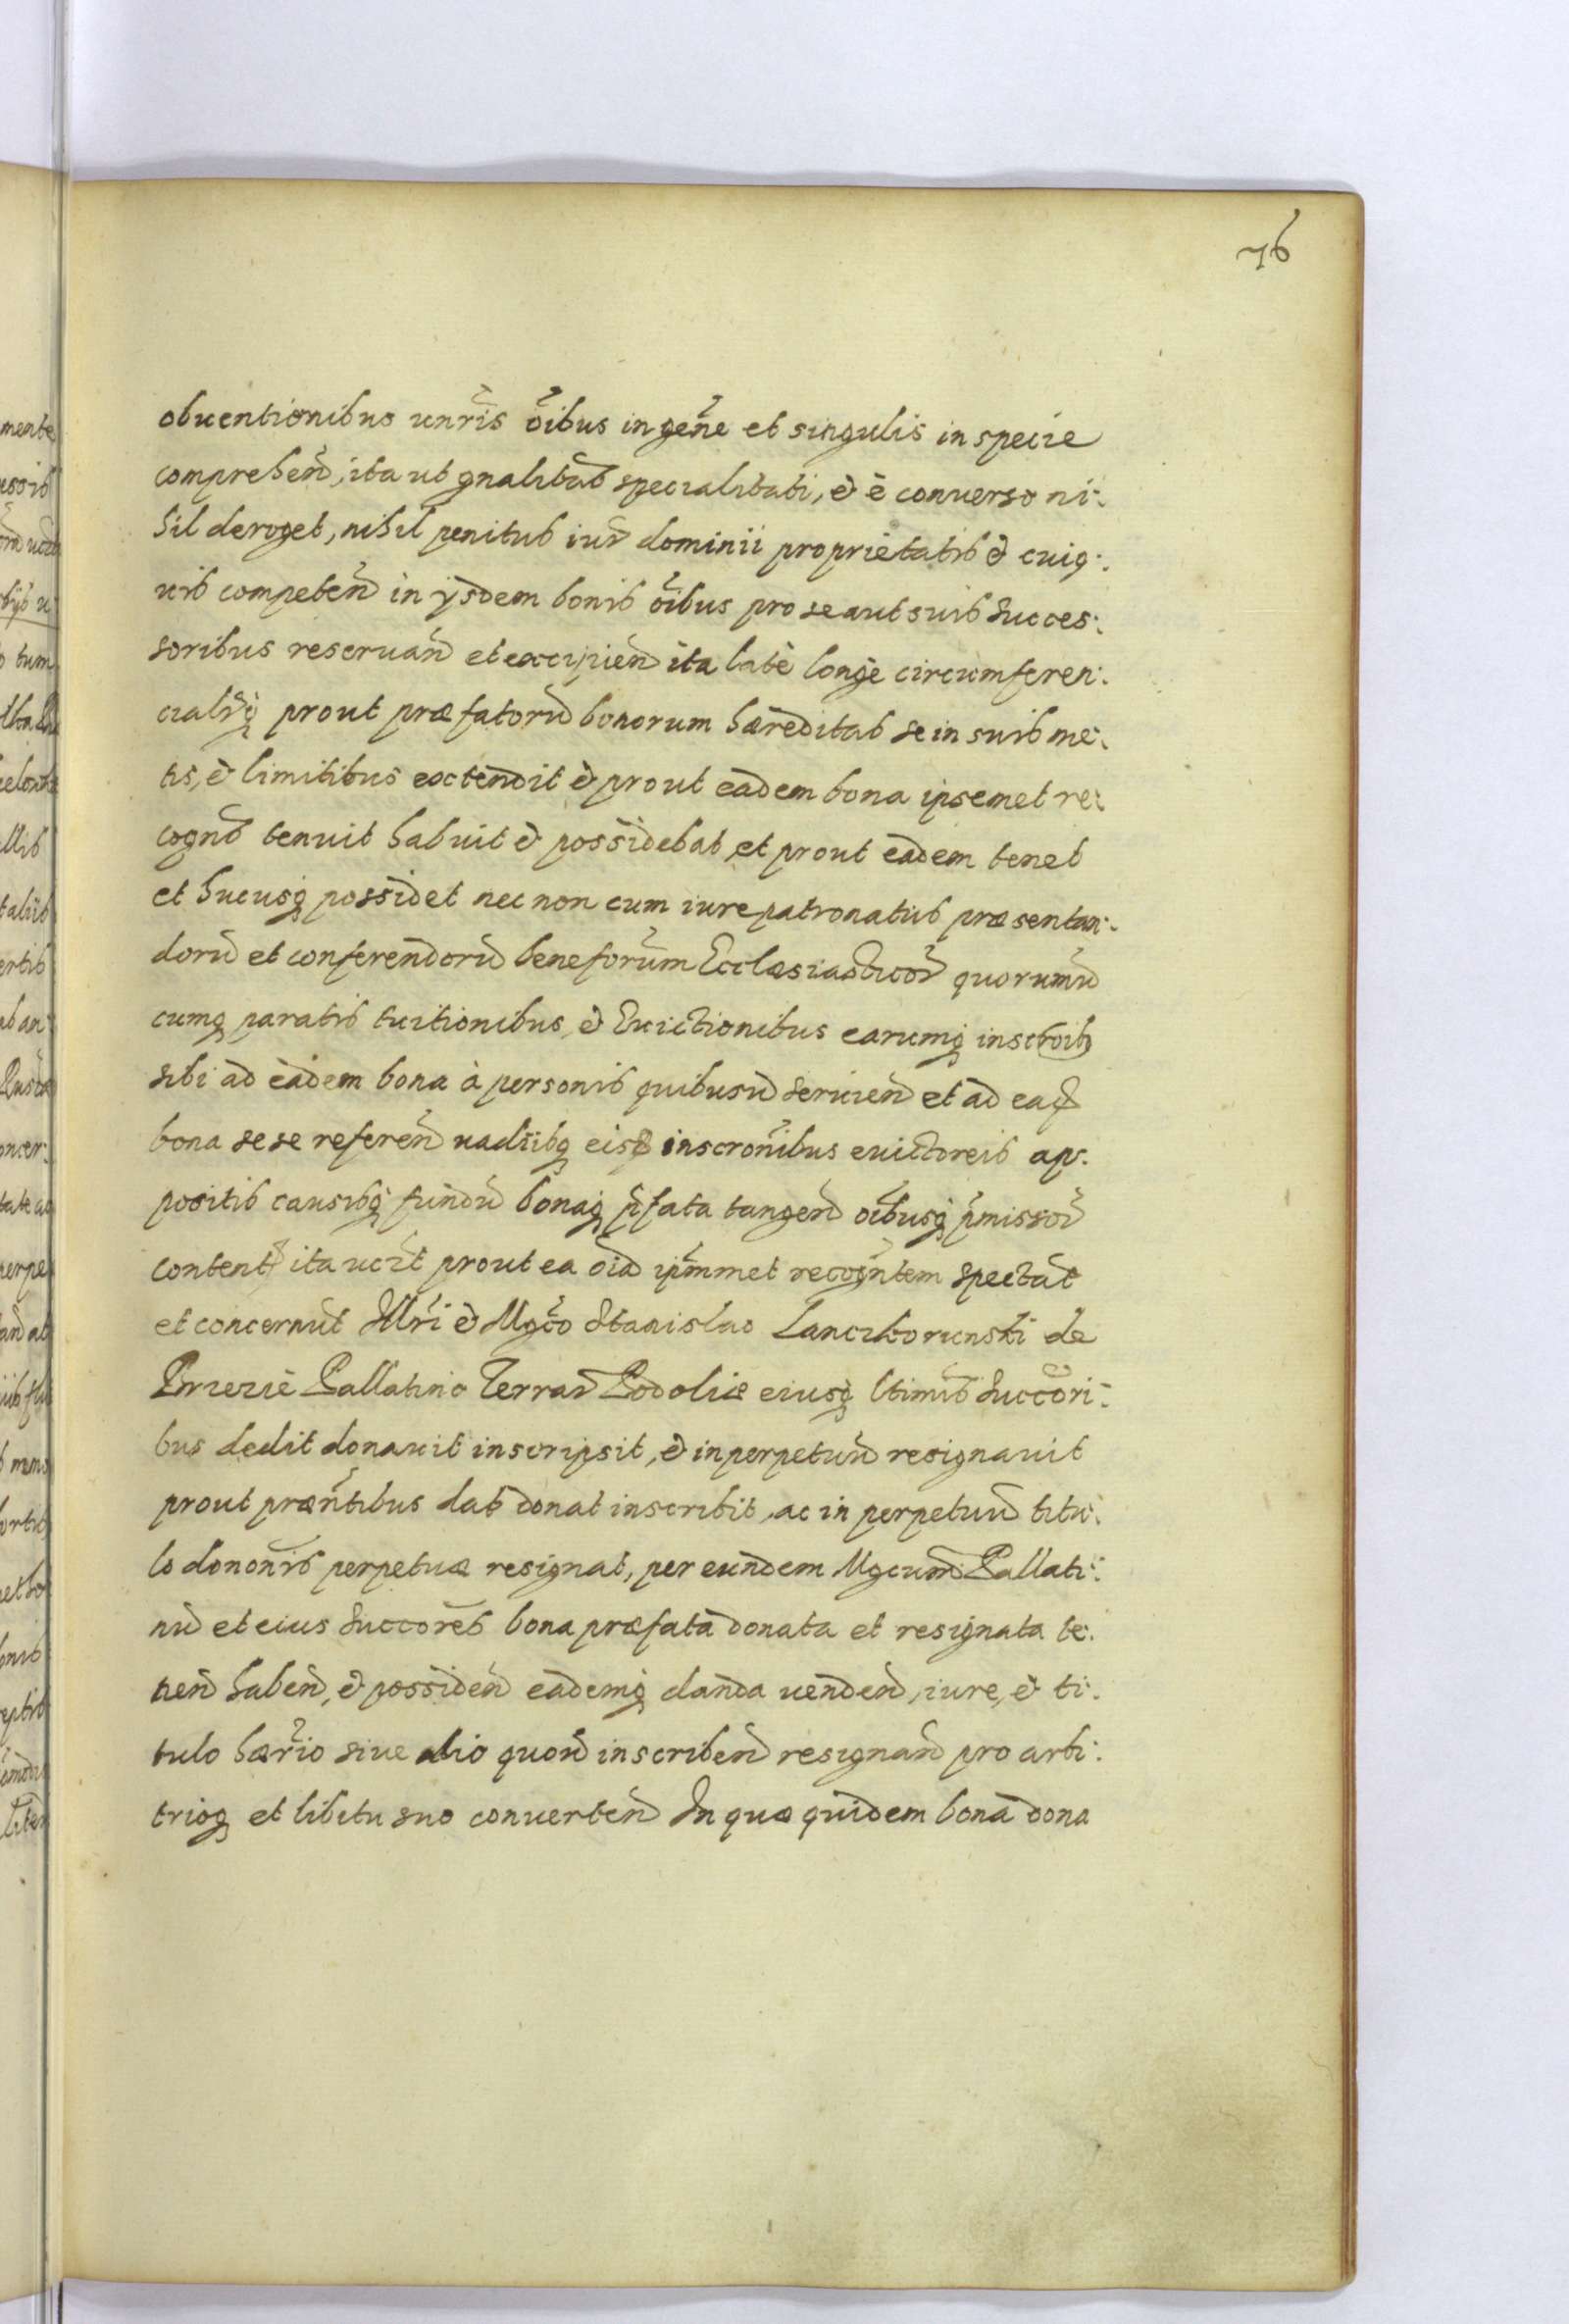 76
obuentionibus unr̃is oĩbus in gen̄e et singulis in specie
comprehen̄, ita ut gnalitas specialitati, & è conuerso ni:
hil deroget, nihil penitus iur̄ dominii proprietatis & cuiq:
uis competen̄ in ijsdem bonis oĩbus pro se aut suis succes:
soribus reseruan̄ et excipien̄ ita latè longè circumferen:
cialrq; prout præfatorū bonorum hæreditas se in suis me:
tis, & limitibus extendit & prout eadem bona ipsemet re:
cogns tenuit habuit & possidebat, et prout eadem tenet
et hucusq; possidet nec non cum iure patronatus præsentan:
dorū et conferendorū beneforum Ecclæsiasticor̄ quorumū
cumq; paratis tuitionibus, & Euictionibus earumq; inscroib;
sibi ad eadem bona à personis quibusū seruien̄ et ad eaḍ
bona sese referen̄ uadiibq; eisḍ inscronibus euictoreis ap:
positis causibq; fundū bonaq; p̃fata tangen̄ oĩbusq; p̃missor̄
content, ita uc̃it prout ea oĩa ip̃mmet recogñtem spectāt
et concernūt Illr̃i & Mgc̃o Stanislao Lanczkorunski de
Brzezie Pallatino Terrar̄ Podoliæ eiusq; ltimis succori:
bus dedit donauit inscripsit, & in perpetuū resignauit
prout præn̄tibus dat donat inscribit, ac in perpetuū titu:
lo dononis perpetuæ resignat, per eundem Mgcum Pallati:
nū et eius succores bona præfata donata et resignata te:
nen̄ haben̄, & possiden̄ eademq; danda uenden̄, iure, & ti:
tulo hær̃io siue alio quoū inscriben̄ resignan̄ pro arbi:
trioq; et libitu suo conuerten̄ In quæ quidem bona dona